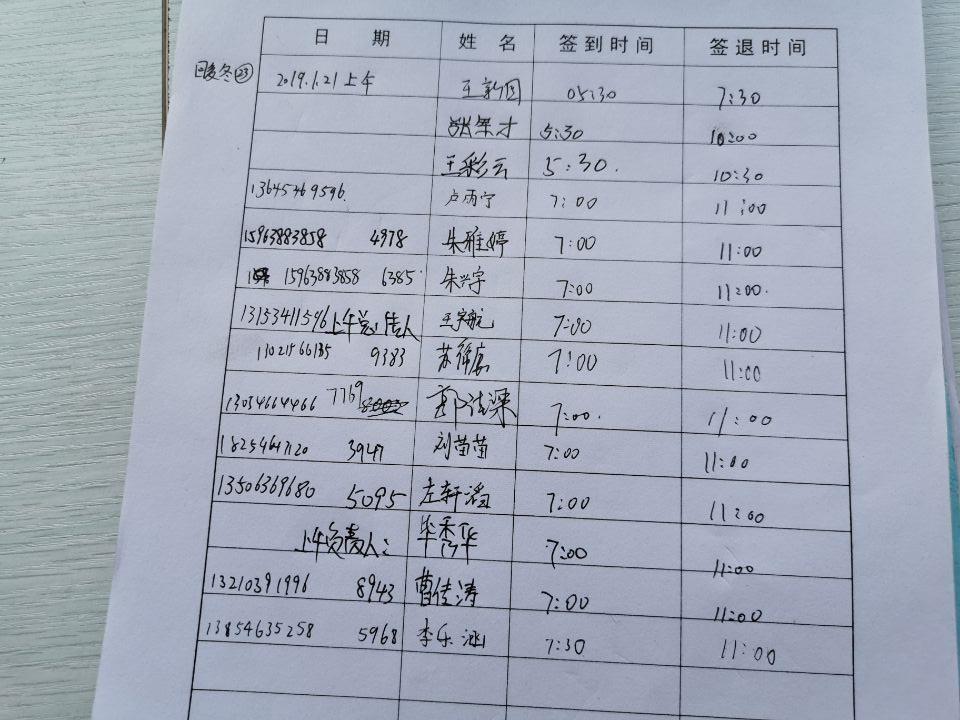 日 期 姓 名 签到时间 签退时间
暖冬㉓ 2019.1.21上午 王新国 05:30 7:30
张军才 5:30 10:00
王彩云 5:30. 10:30
13645469596. 卢雨宁 7:00 11:00
15963883858 4978 朱雅婷 7:00 11:00
15963883858 6385 朱兴宇 7:00 11:00.
13153411596 上午 人 王宇航 7:00 11:00
9383 苏 7:00 11:00
13054664466 7769 郭 深 7:00. 11:00
18254647120 3947 刘苗苗 7:00 11:00
13506369680 5095 左轩滔 7:00 11:00
上午负责人: 毕秀华 7:00 11:00
13210391996 8943 曹佳涛 7:00 11:00
13854635258 5968 李乐涵 7:30 11:00